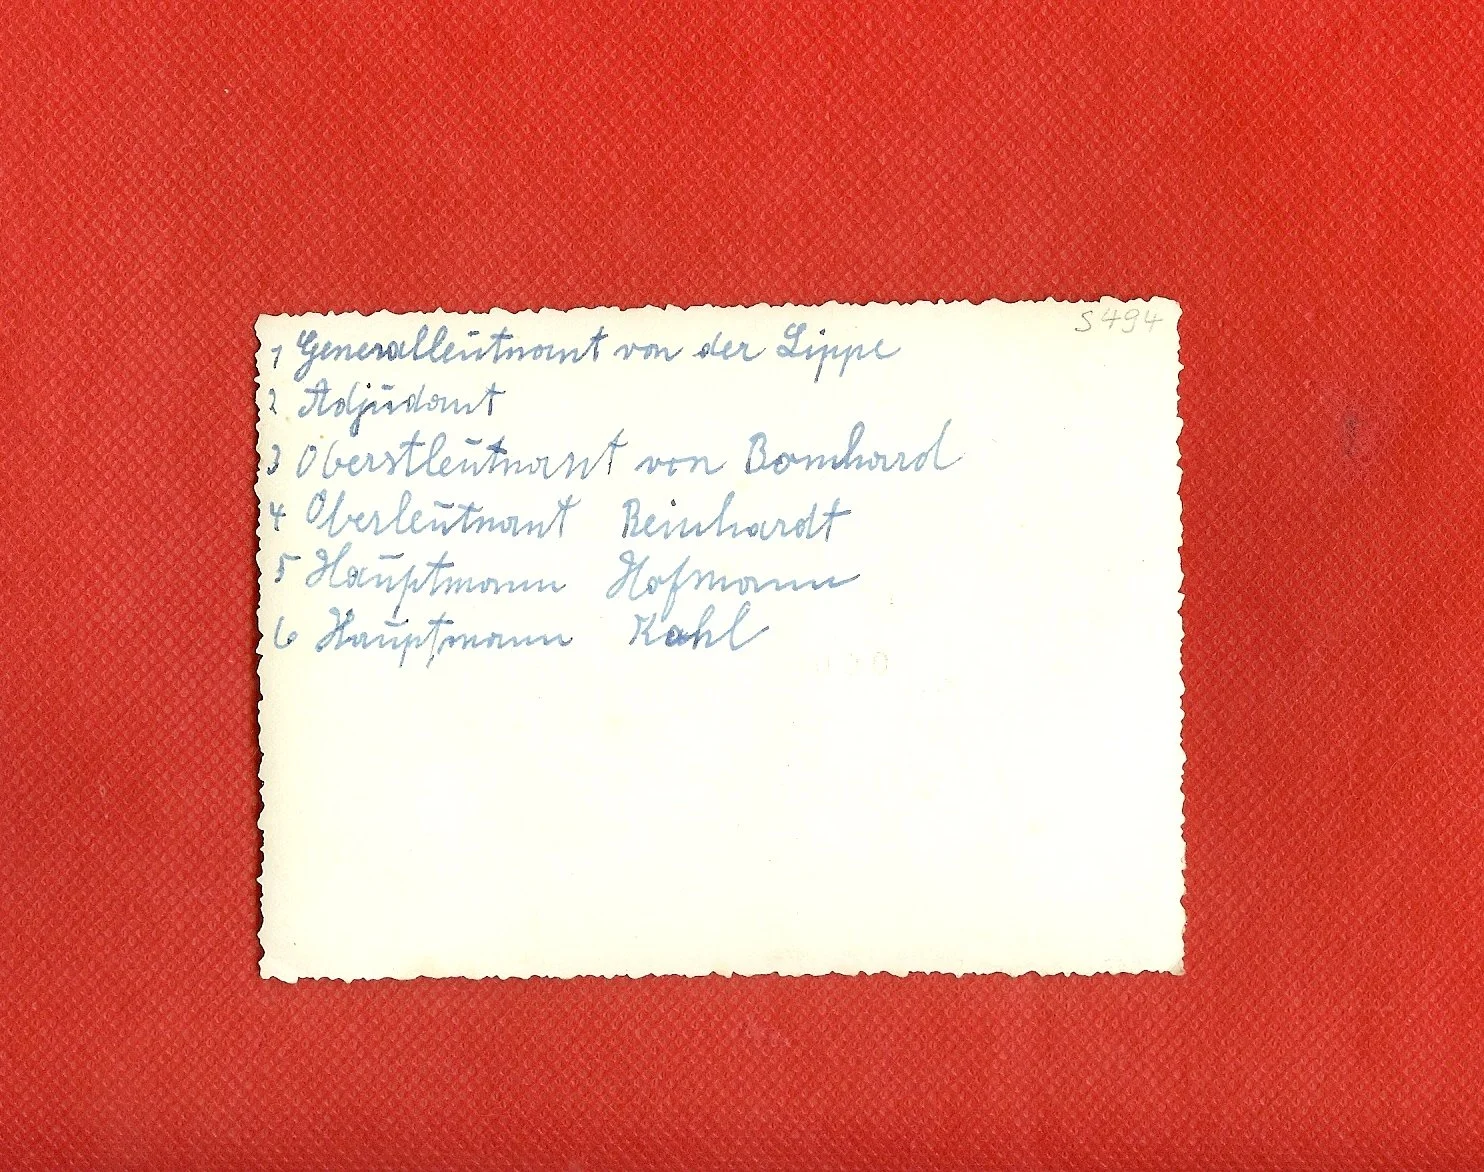 S494
1 Generalleutnant von der Lippe
2 Adjudant
3 Oberstleutnant von Bomhard
4 Oberleutnant Reinhardt
5 Hauptmann Hofmann
6 Hauptmann Kahl